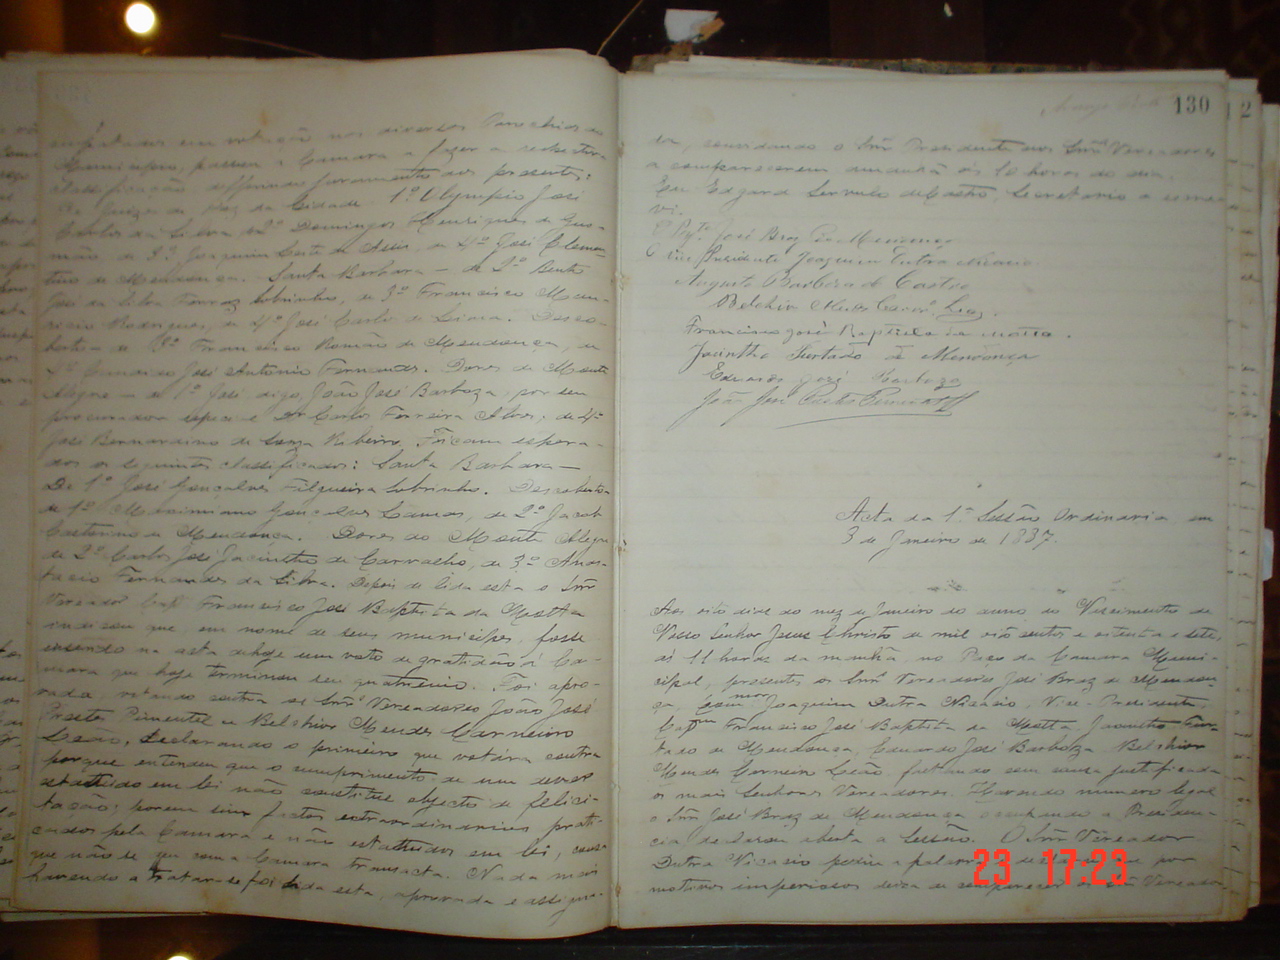 em votação nos diversos Parochias do
Municipio, passou a Camara a fazer a
classificação, deferindo juramento aos presentes:
de Juizes de Paz da Cidade 1º Olympio José
Carlos da Silva, 2º Domingos Henriques de Gus-
mão, de 3º Joaquim Leite de Assis, de 4º José Clemen-
tino de Mendonça. Santa Barbara — de 2º Bento
José da Silva Ferraz Sobrinho, de 3º Francisco Mau-
ricio Rodrigues, de 4º José Carlos de Lima. Desco-
berto — de Francisco Romão de Mendonça, de
José Antonio Fernandes. Dores do Monte
Alegre — de 1º José, digo, João José Barboza, por seu
procurador especial Dr Carlos Ferreira Alves; de 4º
José Bernardino de Souza Ribeiro. Ficam espera-
dos os seguintes classificados: Santa Barbara —
De 1º José Gonçalves Filgueira Sobrinho. Descoberto
de 1º Maximiano Gonçalves Lamas, de 2º Jacob
de Mendonça. Dores do Monte Alegre
de 2º Carlos José Jacintho de Carvalho, de 3º Anas-
tacio Fernandes da Silva. Depois de lida esta o Snr
Vereador Capm Francisco José Baptista da Motta
indicou que, em nome de seus municipes, fosse
inserido na acta deste um voto de gratidão á Ca-
mara que hoje terminou seu quatrienio. Foi apro-
vada, votando contra os Snrs Vereadores João José
Prestes Pimentel e Belchior Mendes Carneiro
Leão, declarando o primeiro que votára contra
porque entendeu que o cumprimento de um dever
estatuido em lei não constitue objecto de felici-
tação; porem sim factos extraordinarios prati-
cados pela Camara e não estatuidos em lei, cousa
que não se deu com a Camara transacta. Nada mais
havendo a tratar-se foi lida esta, aprovada e assigna-
130
da, convidando o Snr Presidente aos Snrs Vereadores
a comparecerem amanhã ás 10 horas do dia.
Eu Edgard Servulo de Castro, Secretario a escre-
vi.
O Pre José Braz de Mendonça
O Vice Presidente Joaquim Dutra Nicacio
Augusto Barbosa de Castro
Belchior Mendes Carnro Leão.
Francisco José Baptista da Motta.
Jacintho Furtado de Mendonça
Eduardo José Barboza
João José Prestes Pimentel
Acta da 1ª Sessão Ordinaria em
8 de Janeiro de 1887.
Aos oito dias do mez de Janeiro do anno do Nascimento de
Nosso Senhor Jesus Christo de mil oito centos e oitenta e sete,
ás 11 horas da manhã, no Paço da Camara Muni-
cipal, presentes os Snrs Vereadores José Braz de Mendon-
ça, Joaquim Dutra Nicacio, Vice-Presidente,
Capm Francisco José Baptista da Motta, Jacintho Fur-
tado de Mendonça, Eduardo José Barboza, Belchior
Mendes Carneiro Leão, faltando sem causa justificada
os mais Senhores Vereadores. Havendo numero legal
o Snr José Braz de Mendonça occupando a Presiden-
cia declarou aberta a Sessão. O Snr Vereador
Dutra Nicacio pediu a palavra por
motivos imperiosos deixa de comparecer o Snr Vereador
23 17:23